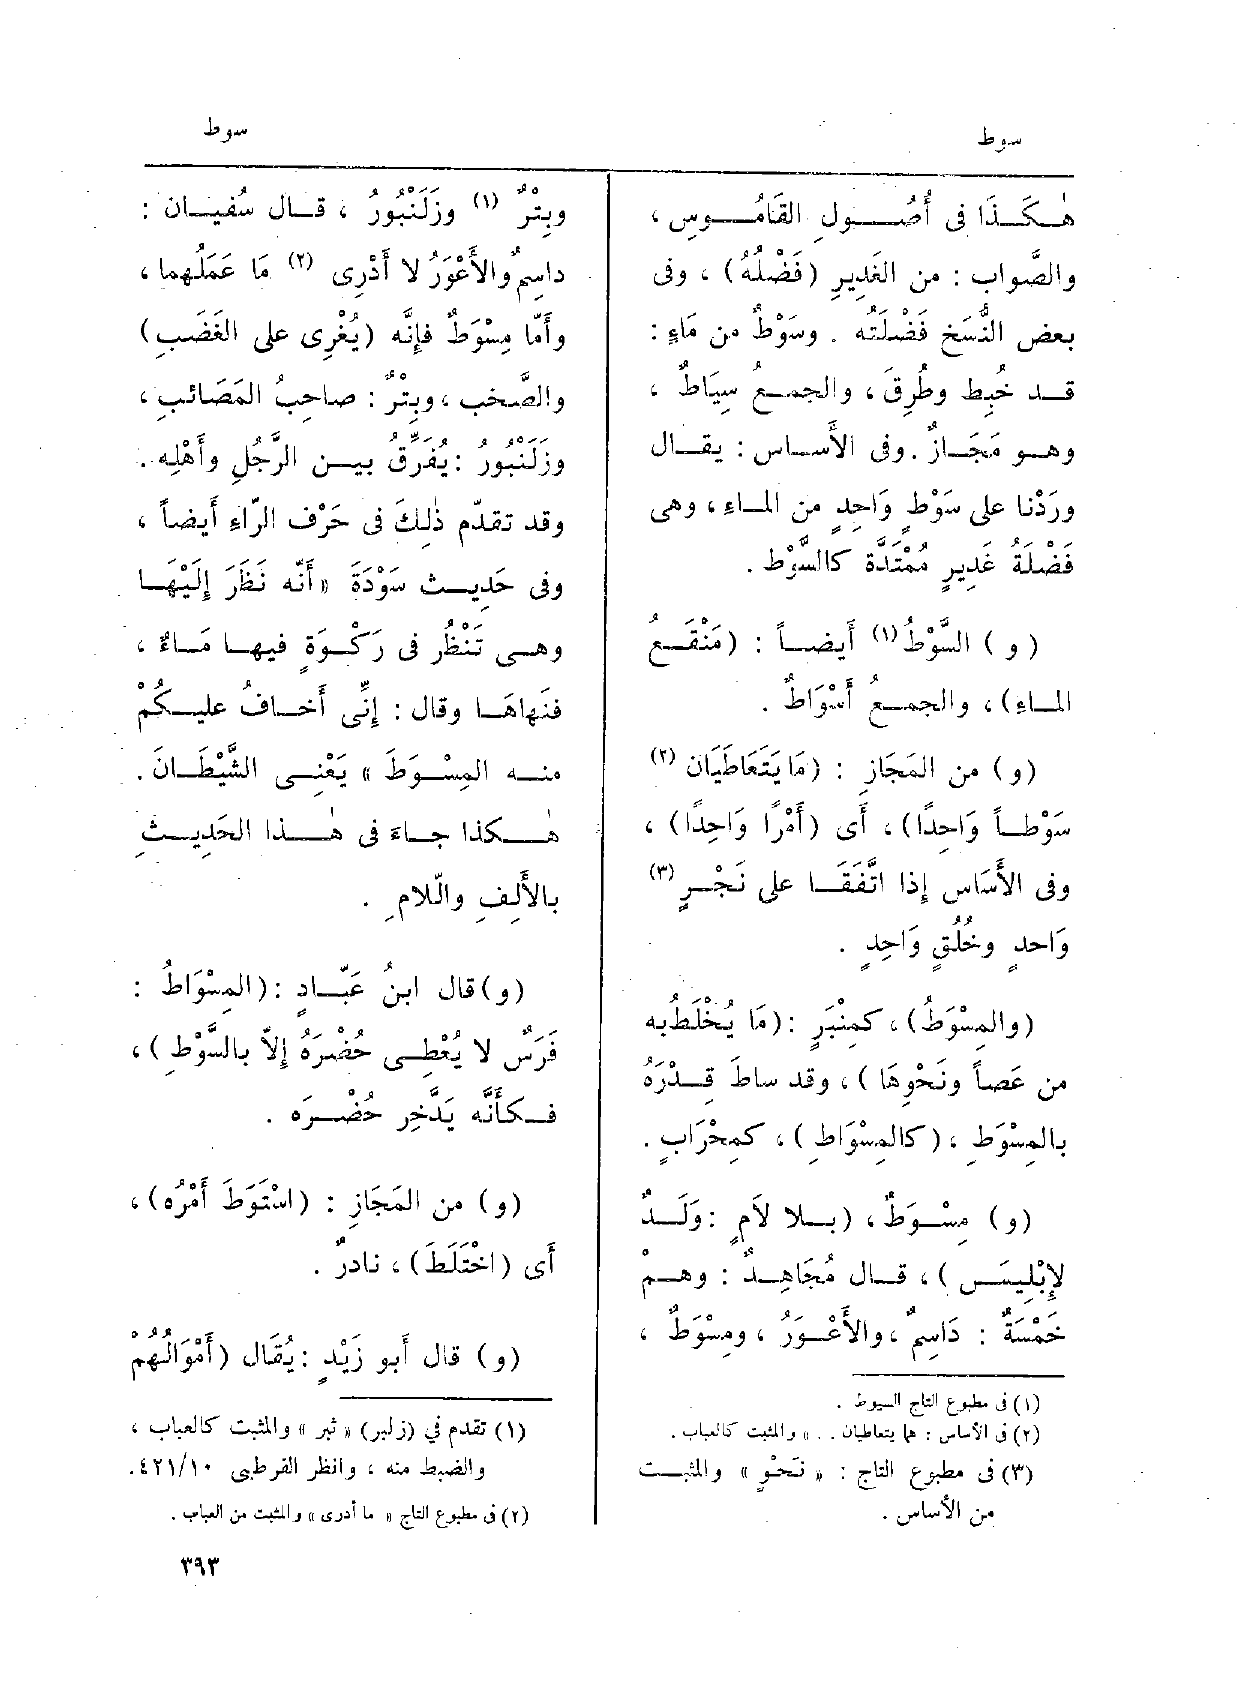 سوط
سوط
هٰكَذَا فى أُصُول القَامُوسِ ،
والصَّواب : من الغَدِيرِ (فَضْلُهُ) ، وفى
بعض النُّسَخ فَضْلَتُه . وسَوْطٌ من مَاءٍ :
قد خُبِط وطُرِقَ ، والجمعُ سِيَاطٌ ،
وهو مَجَازٌ . وفى الأَساس : يقال
ورَدْنا على سَوْطٍ وَاحِدٍ من الماءِ ، وهى
فَضْلَةُ غَدِيرٍ مُمْتَدَّة كالسَّوْطِ .
( و ) السَّوْطُ (١) أَيضاً : (مَنْقَعُ
الماءِ) ، والجمعُ أَسْوَاطٌ .
(و) من المَجَازِ : (مَا يَتَعَاطَيَان (٢)
سَوْطاً وَاحِدًا) ، أَى (أَمْرًا وَاحِدًا) ،
وفى الأَسَاس إِذا اتَّفَقَا على نَجْرٍ (٣)
وَاحدٍ وخُلُقٍ وَاحِدٍ .
(والمِسْوَطُ) ، كمِنْبَرٍ : (مَا يُخْلَطُ به
من عَصاً ونَحْوِهَا ) ، وقد ساطَ قِدْرَهُ
بالمِسْوَطِ ، (كالمِسْوَاطِ ) ، كمِحْرَابٍ .
(و) مِسْوَطٌ ، (بلا لاَمٍ : وَلَدٌ
لإِبْلِيسَ ) ، قال مُجَاهِدٌ : وهمْ
خَمْسَةٌ : دَاسِمٌ ، والأَعْوَرُ ، ومِسْوَطٌ ،
(١) فى مطبوع التاج السيوط .
(٢) فى الأساس : هما يتعاطيان . . » والمثبت كالعباب .
(٣) فى مطبوع التاج : « نَحْوٍ » والمثبت
من الأساس .
وبِتْرٌ (١) وزَلَنْبُورُ ، قال سُفيان :
داسِمٌ والأَعْوَرُ لا أَدْرِى (٢) مَا عَمَلُهما ،
وأَمّا مِسْوَطٌ فإِنَّه (يُغْرِى على الغَضَبِ)
والصَّخب ، وبِتْرٌ : صاحِبُ المَصَائبِ ،
وزلَنْبُورُ : يُفَرِّقُ بين الرَّجُلِ وأَهْلِه .
وقد تقدّم ذٰلِكَ فى حَرْف الرّاءِ أَيضاً ،
وفى حَدِيث سَوْدَةَ « أَنّه نَظَرَ إِلَيْهَا
وهى تَنْظُر فى رَكْوَةٍ فيها مَاءٌ ،
فنَهاهَا وقال : إِنِّى أَخافُ عليكُمْ
منه المِسْوَطَ » يَعْنِى الشَّيْطَانَ .
هٰكذا جاءَ فى هٰذا الحَدِيثِ
بالأَلِفِ والّلامِ .
(و) قال ابنُ عَبّادٍ : (المِسْوَاطُ :
فَرَسٌ لا يُعْطِى حُضْرَهُ إِلاّ بالسَّوْطِ ) ،
فكأَنَّه يَدَّخِر حُضْرَه .
(و) من المَجَازِ : (اسْتَوَطَ أَمْرُه) ،
أَى (اخْتَلَطَ) ، نادرٌ .
(و) قال أَبو زَيْدٍ : يُقَال (أَمْوَالُهُمْ
(١) تقدم في (زلبر) « ثبر » والمثبت كالعباب ،
والضبط منه ، وانظر القرطبى ٤٢١/١٠.
(٢) فى مطبوع التاج « ما أدرى » والمثبت من العباب .
٣٩٣